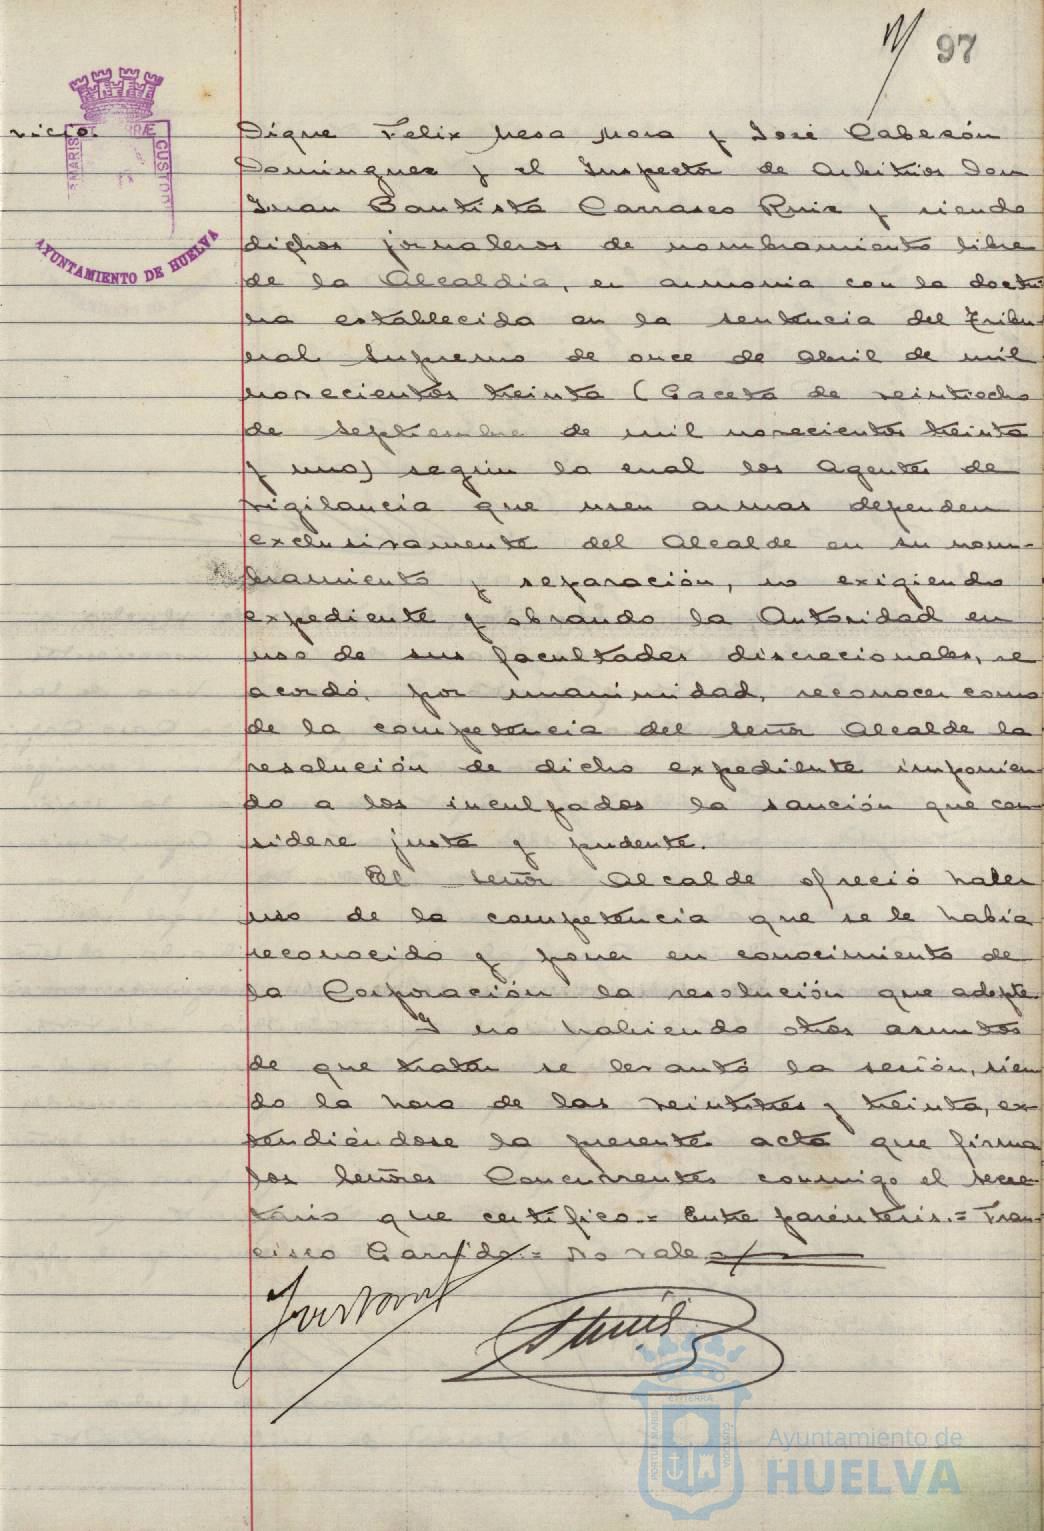 97
vicio.
MARIS
TERRÆ
CUSTOD
AYUNTAMIENTO DE HUELVA
Dique Felix Mesa Mora y José Cabezón
Dominguez y el Inspector de Arbitrios Don
Juan Bautista Carrasco Ruiz y siendo
dichos jornaleros de nombramiento libre
de la Alcaldia, en armonia con la doctri
na establecida en la sentencia del Tribu
nal Supremo de once de Abril de mil
novecientos treinta (Gaceta de veintiocho
de septiembre de mil novecientos treinta
y uno) según la cual los Agentes de
vigilancia que usen armas dependen
exclusivamente del Alcalde en su nom-
bramiento y separación, no exigiendo
expediente y obrando la Autoridad en
uso de sus facultades discrecionales, se
acordó, por unanimidad, reconocer como
de la competencia del señor Alcalde la
resolución de dicho expediente imponien
do a los inculpados la sanción que con
sidere justa y prudente.
El señor Alcalde ofreció hacer
uso de la competencia que se le habia
reconocido y poner en conocimiento de
la Corporación la resolución que adopte.
Y no habiendo otros asuntos
de que tratar se levantó la sesión, sien
do la hora de las veintitres y treinta, ex
tendiéndose la presente acta que firman
los señores Concurrentes conmigo el secre
tario que certifico.= Entre paréntesis.= Fran
cisco Garrido.= No vale.
PORTUS MARIS
ET TERRA
CUSTODIA
Ayuntamiento de
HUELVA